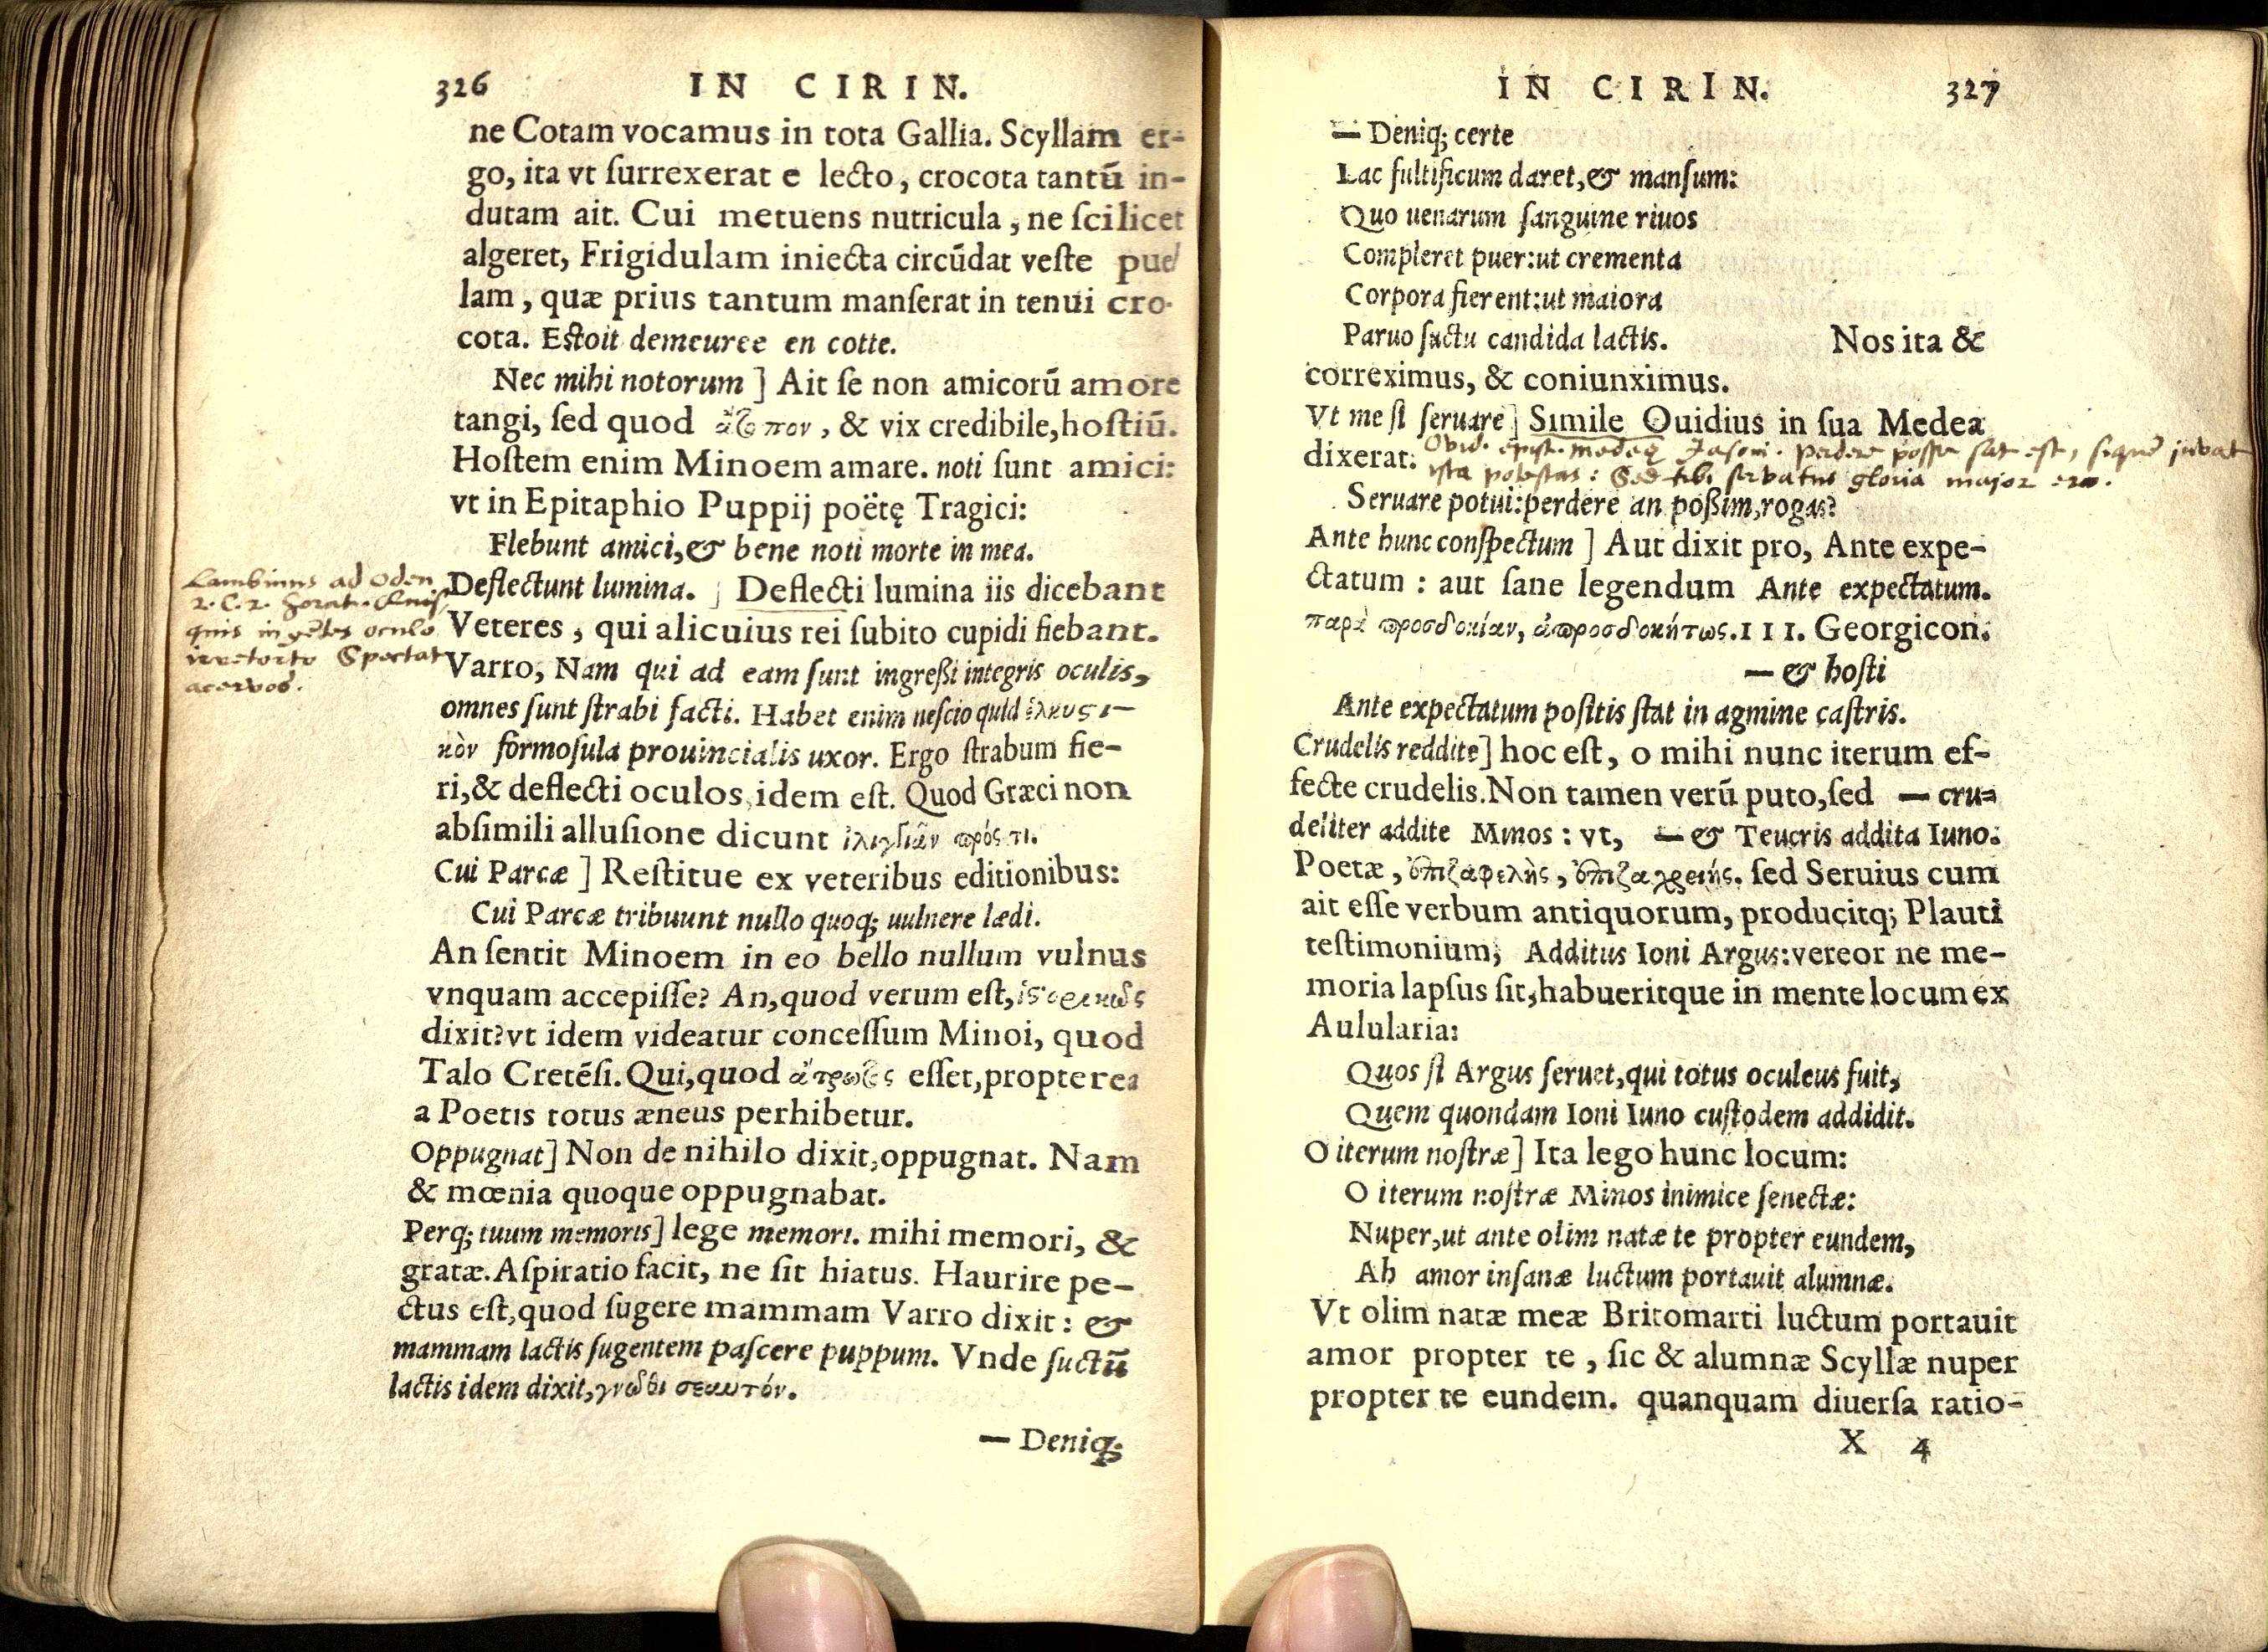 326 IN CIRIN.
ne Cotam vocamus in tota Gallia. Scyllam er-
go, ita vt ſurrexerat e lecto, crocota tantū in-
dutam ait. Cui metuens nutricula, ne ſcilicet
algeret, Frigidulam iniecta circūdat veſte puel
lam, quæ prius tantum manſerat in tenui cro-
cota. Eſtoit demeuree en cotte.
Nec mihi notorum] Ait ſe non amicorū amore
tangi, ſed quod ἄτοπον, & vix credibile, hoſtiū.
Hoſtem enim Minoem amare. noti ſunt amici:
vt in Epitaphio Puppij poëtę Tragici:
Flebunt amici, & bene noti morte in mea.
Deflectunt lumina.] Deflecti lumina iis dicebant
Veteres, qui alicuius rei ſubito cupidi fiebant.
Varro, Nam qui ad eam ſunt ingreßi integris oculis,
omnes ſunt ſtrabi facti. Habet enim neſcio quid ἑλκυστι-
κὸν formoſula prouincialis uxor. Ergo ſtrabum fie-
ri, & deflecti oculos, idem eſt. Quod Græci non
abſimili alluſione dicunt ἰλιγγιᾶν πρός τι.
Cui Parcæ] Reſtitue ex veteribus editionibus:
Cui Parcæ tribuunt nullo quoq; uulnere lædi.
An ſentit Minoem in eo bello nullum vulnus
vnquam accepiſſe? An, quod verum eſt, ἱστορικῶς
dixit? vt idem videatur conceſſum Minoi, quod
Talo Cretēſi. Qui, quod ἄτρωτος eſſet, propterea
a Poetis totus æneus perhibetur.
Oppugnat] Non de nihilo dixit, oppugnat. Nam
& mœnia quoque oppugnabat.
Perq; tuum memoris] lege memori. mihi memori, &
gratæ. Aſpiratio facit, ne ſit hiatus. Haurire pe-
ctus eſt, quod ſugere mammam Varro dixit: &
mammam lactis ſugentem paſcere puppum. Vnde ſuctū
lactis idem dixit, γνῶθι σεαυτόν.
— Deniq;
Lambinus ad Oden
2. l. 2. Horat. Quis-
quis ingētes oculo
irretorto Spectat
acervos.
IN CIRIN. 327
— Deniq; certe
Lac fultificum daret, & manſum:
Quo uenarum ſanguine riuos
Compleret puer: ut crementa
Corpora fierent: ut maiora
Paruo ſuctu candida lactis. Nos ita &
correximus, & coniunximus.
Vt me ſi ſeruare] Simile Ouidius in ſua Medea
dixerat:
Ovid. epist. Medeę Jasoni. Perdere posse sat est, siquē juvat
ista potestas: Sed tibi servatus gloria major ero.
Seruare potui: perdere an poßim, rogas?
Ante hunc conſpectum] Aut dixit pro, Ante expe-
ctatum: aut ſane legendum Ante expectatum.
παρὰ προσδοκίαν, ἀπροσδοκήτως. III. Georgicon.
— & hoſti
Ante expectatum poſitis ſtat in agmine caſtris.
Crudelis reddite] hoc eſt, o mihi nunc iterum ef-
fecte crudelis. Non tamen verū puto, ſed — cru-
deliter addite Minos: vt, — & Teucris addita Iuno.
Poetæ, ἐπιζαφελὴς, ἐπιζαχρειής. ſed Seruius cum
ait eſſe verbum antiquorum, producitq; Plauti
teſtimonium; Additus Ioni Argus: vereor ne me-
moria lapſus ſit, habueritque in mente locum ex
Aulularia:
Quos ſi Argus ſeruet, qui totus oculeus fuit,
Quem quondam Ioni Iuno cuſtodem addidit.
O iterum noſtræ] Ita lego hunc locum:
O iterum noſtræ Minos inimice ſenectæ:
Nuper, ut ante olim natæ te propter eundem,
Ah amor inſanæ luctum portauit alumnæ.
Vt olim natæ meæ Britomarti luctum portauit
amor propter te, ſic & alumnæ Scyllæ nuper
propter te eundem. quanquam diuerſa ratio-
X 4